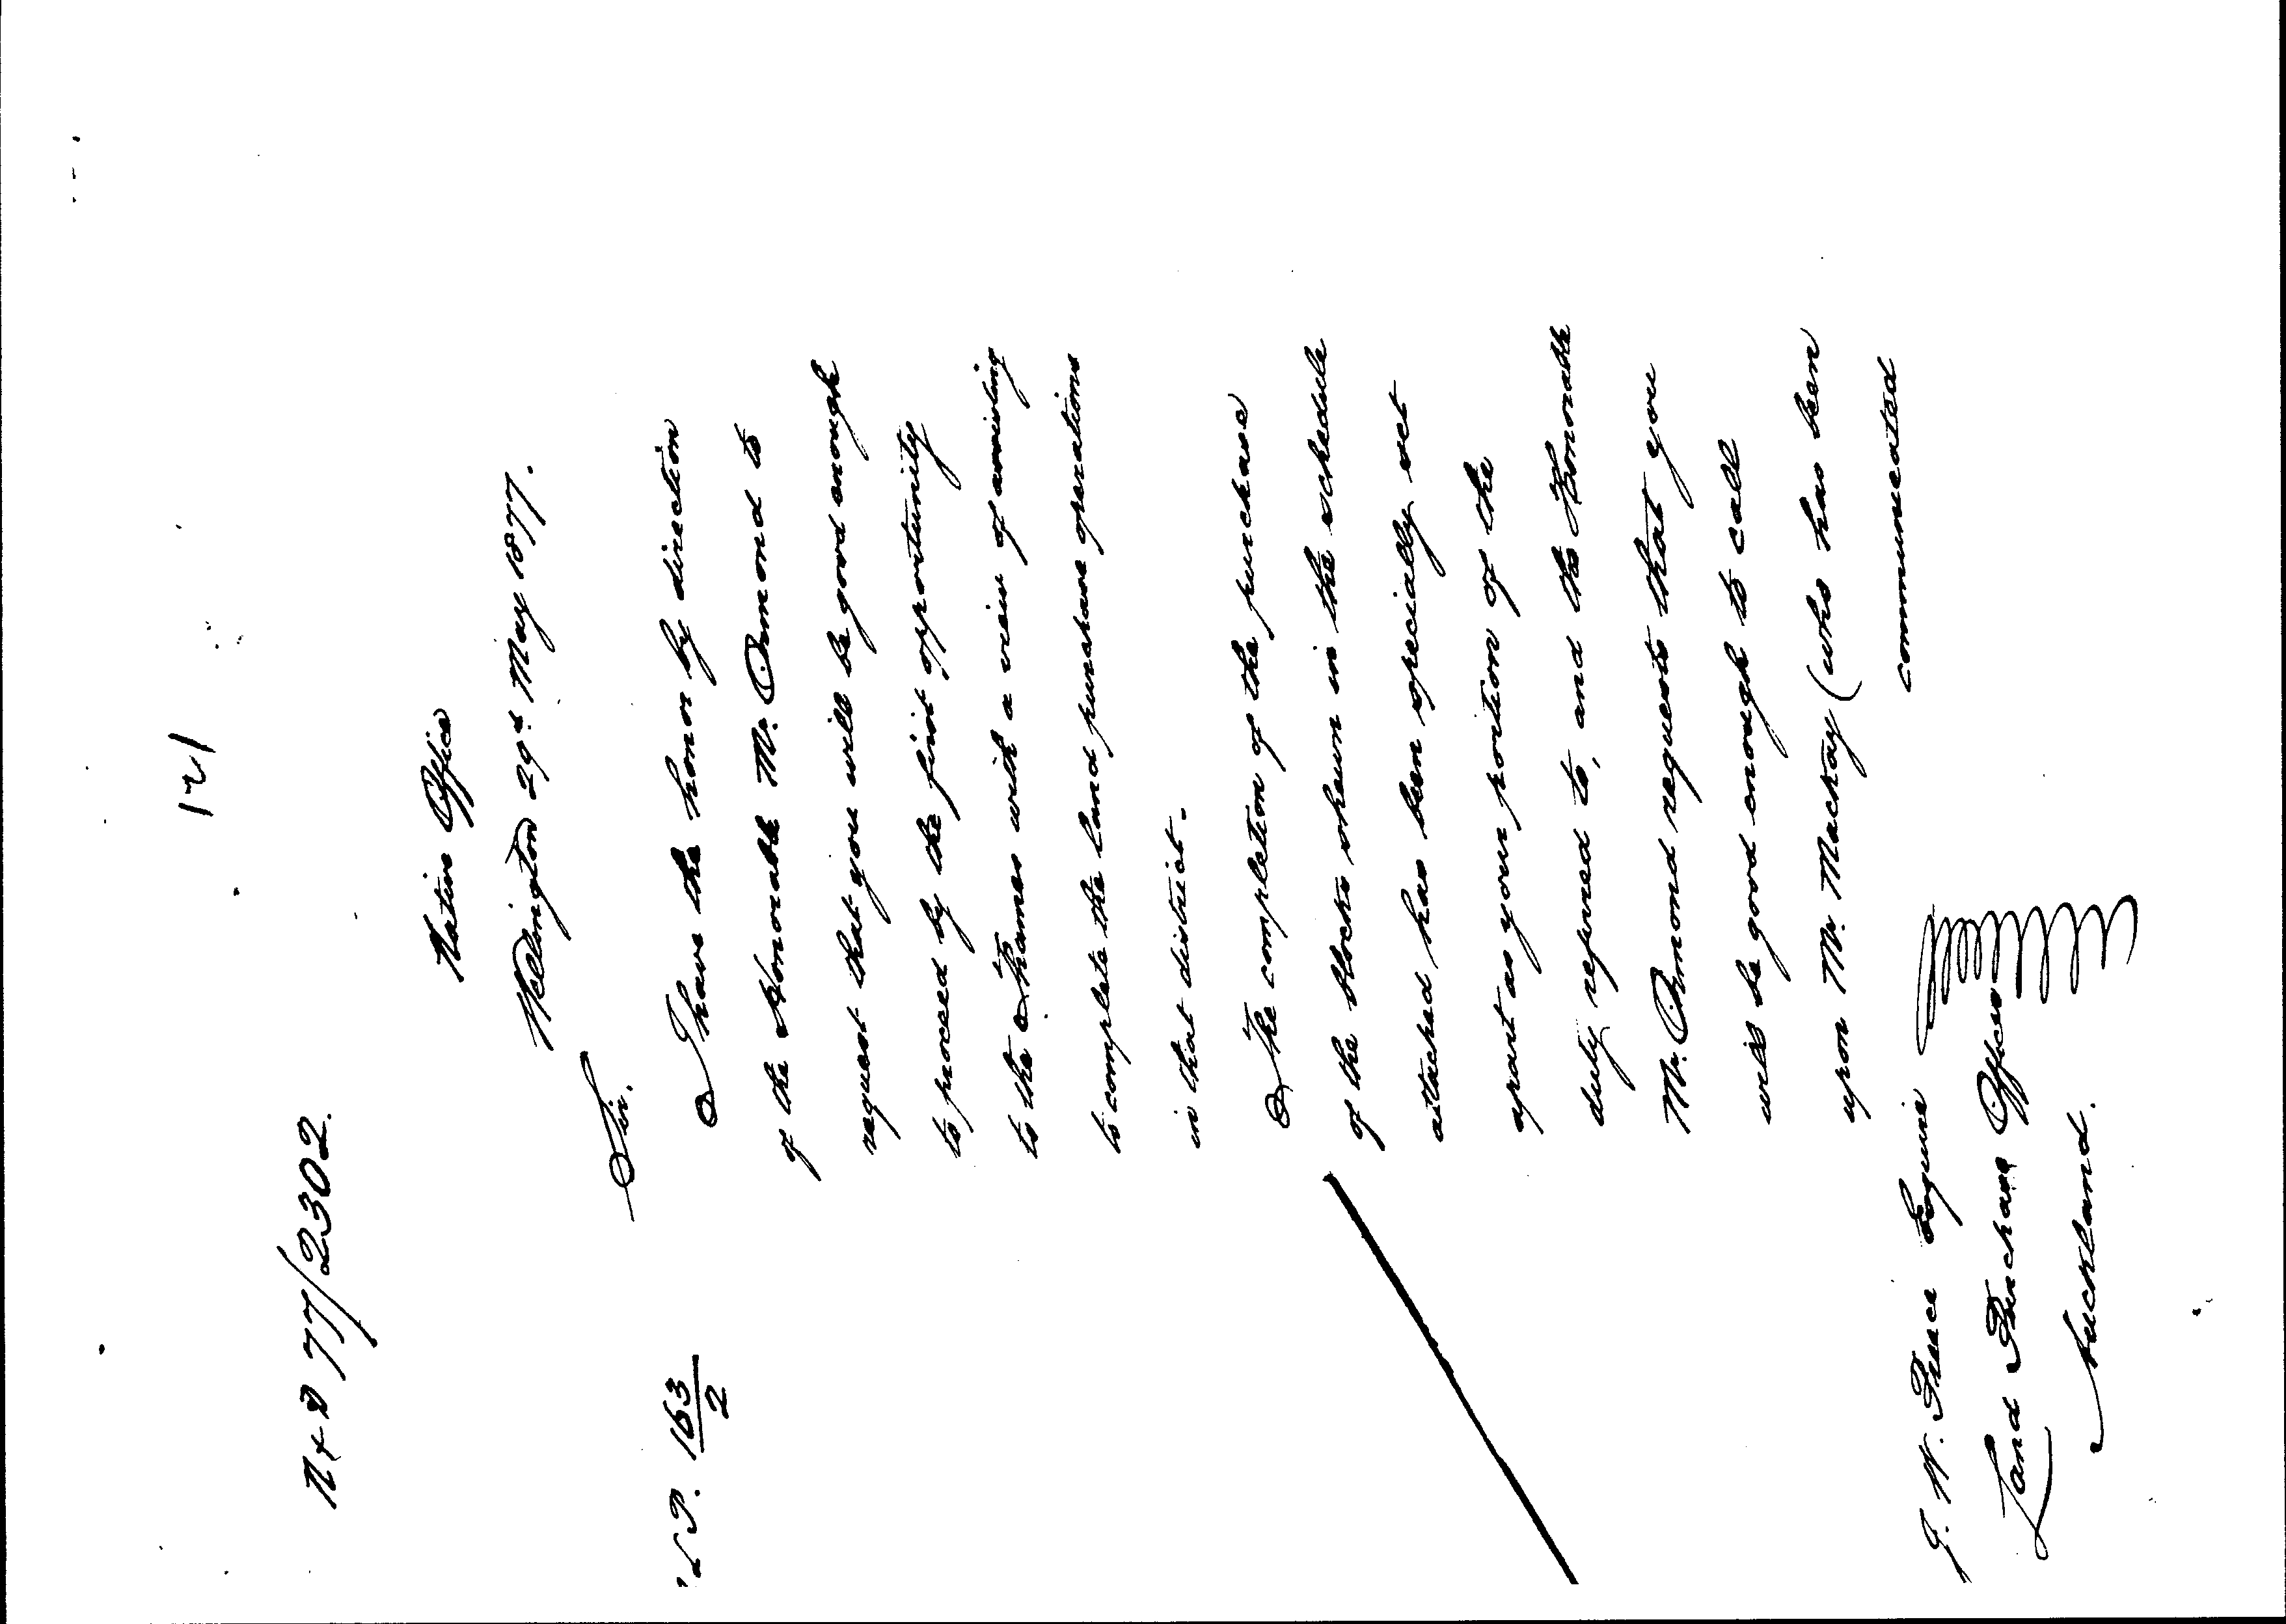 121
N & D 77/2302.
Native Office
Wellington 29th May 1877.
L P. 163/2
Sir.
I have the honor by direction
of the Honorable Mr. Ormond to
request that you will be good enough
to proceed by the first opportunity
to the Thames with a view of assisting
to complete the land purchase operations
in that district.
The completion of the purchase
of the blocks shewn in the schedule
attached has been specially set
apart as your portion of the
duty referred to, and the Honorable
Mr. Ormond requests that you
will be good enough to call
upon Mr. Mackay (who has been
communicated
J. W. Preece Esquire
Land Purchase Officer
Auckland.